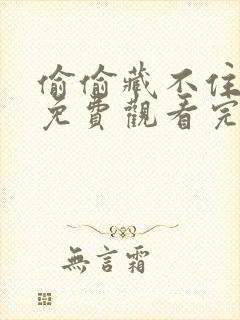 偷偷藏不住
免費觀看完
無言霜